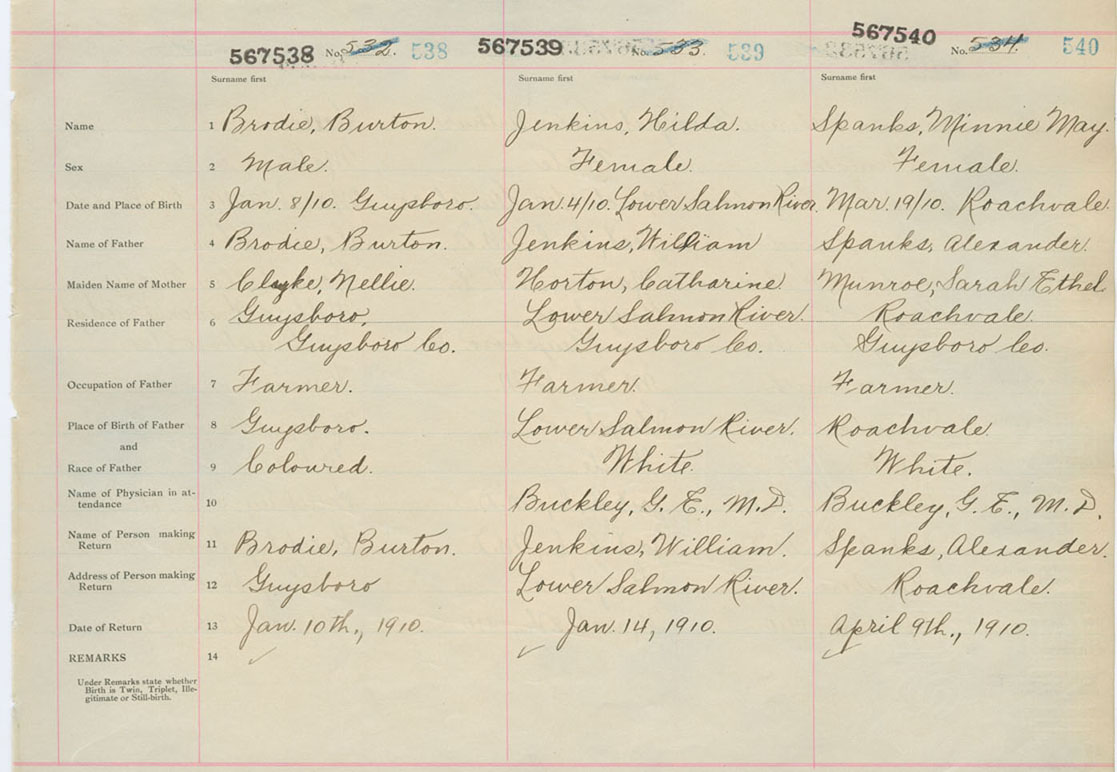 567538 No. 532. 538 567539 No. 533. 539 567540 No. 534. 540
Surname first Surname first Surname first
Name 1 Brodie, Burton. Jenkins, Hilda. Spanks, Minnie May.
Sex 2 Male. Female. Female.
Date and Place of Birth 3 Jan. 8/10. Guysboro. Jan. 4/10. Lower Salmon River. Mar. 19/10. Roachvale.
Name of Father 4 Brodie, Burton. Jenkins, William Spanks, Alexander.
Maiden Name of Mother 5 Clyke, Nellie. Horton, Catharine Munroe, Sarah Ethel
Residence of Father 6 Guysboro, Lower Salmon River. Roachvale.
Guysboro Co. Guysboro Co. Guysboro Co.
Occupation of Father 7 Farmer. Farmer. Farmer.
Place of Birth of Father 8 Guysboro. Lower Salmon River. Roachvale
and
Race of Father 9 Coloured. White. White.
Name of Physician in at-
tendance 10 Buckley, G. E., M.D. Buckley, G. E., M.D.
Name of Person making
Return 11 Brodie, Burton. Jenkins, William. Spanks, Alexander.
Address of Person making
Return 12 Guysboro Lower Salmon River. Roachvale.
Date of Return 13 Jan. 10th., 1910. Jan. 14, 1910. April 9th., 1910.
REMARKS 14
Under Remarks state whether
Birth is Twin, Triplet, Ille-
gitimate or Still-birth.